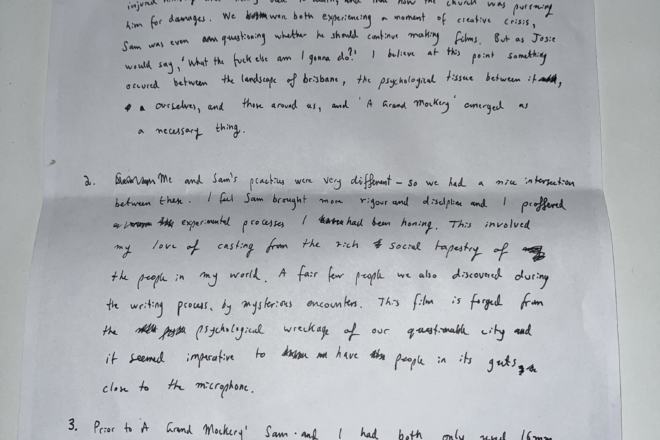 him for damages. We both were both experiencing a moment of creative crisis,
Sam was even questioning whether he should continue making films. But as Josie
would say, 'What the fuck else am I gonna do?' I believe at this point something
occured between the landscape of brisbane, the psychological tissue between it,
ourselves, and those around us, and 'A Grand Mockery' emerged as
a necessary thing.
2. Me and Sam's practices were very different – so we had a nice intersection
between them. I feel Sam brought more rigour and discipline and I proffered
experimental processes I had been honing. This involved
my love of casting from the rich social tapestry of
the people in my world. A fair few people we also discovered during
the writing process, by mysterious encounters. This film is forged from
the psychological wreckage of our questionable city and
it seemed imperative to have people in its guts,
close to the microphone.
3. Prior to 'A Grand Mockery' Sam and I had both only used 16mm